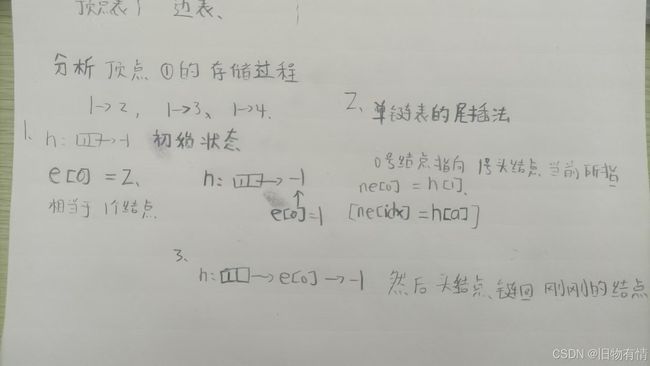 顶点表 边表、
分析 顶点 ①的 存储过程
1→2, 1→3、 1→4.
1. h: →-1 初始状态
e[0] = 2、
相当于 1个结点
h: →-1
↑
e[0]=1
2、单链表的尾插法
0号结点指向 1号头结点 当前所指
ne[0] = h[1].
[ne[idx] = h[a]]
3.
h: →e[0]→-1 然后 头结点 链回 刚刚的结点
CSDN @旧物有情